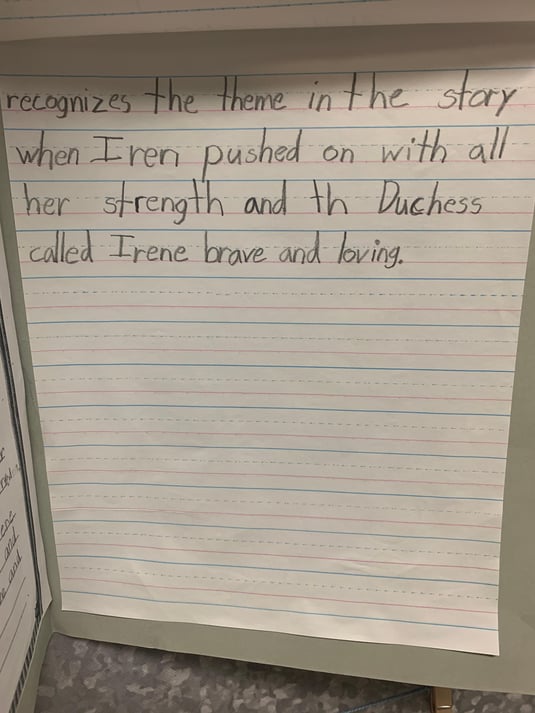 recognizes the theme in the story
when Iren pushed on with all
her strength and th Duchess
called Irene brave and loving.
and